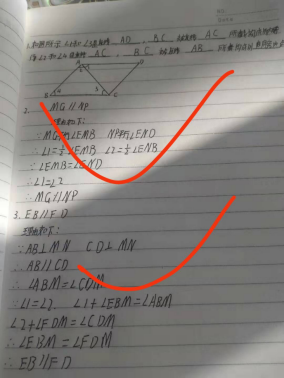 AD BC AC
AC BC AB
A D
B C
2. MG∥NP
理由如下:
∵MG平分∠EMB NP平分∠END
∴∠1=½∠EMB ∠2=½∠ENB
∵∠EMB=∠END
∴∠1=∠2
∴MG∥NP
3. EB∥FD
理由如下:
∵AB⊥MN CD⊥MN
∴AB∥CD
∴∠ABM=∠CDM
∵∠1=∠2 ∠1+∠EBM=∠ABM
∠2+∠FDM=∠CDM
∴∠EBM=∠FDM
∴EB∥FD